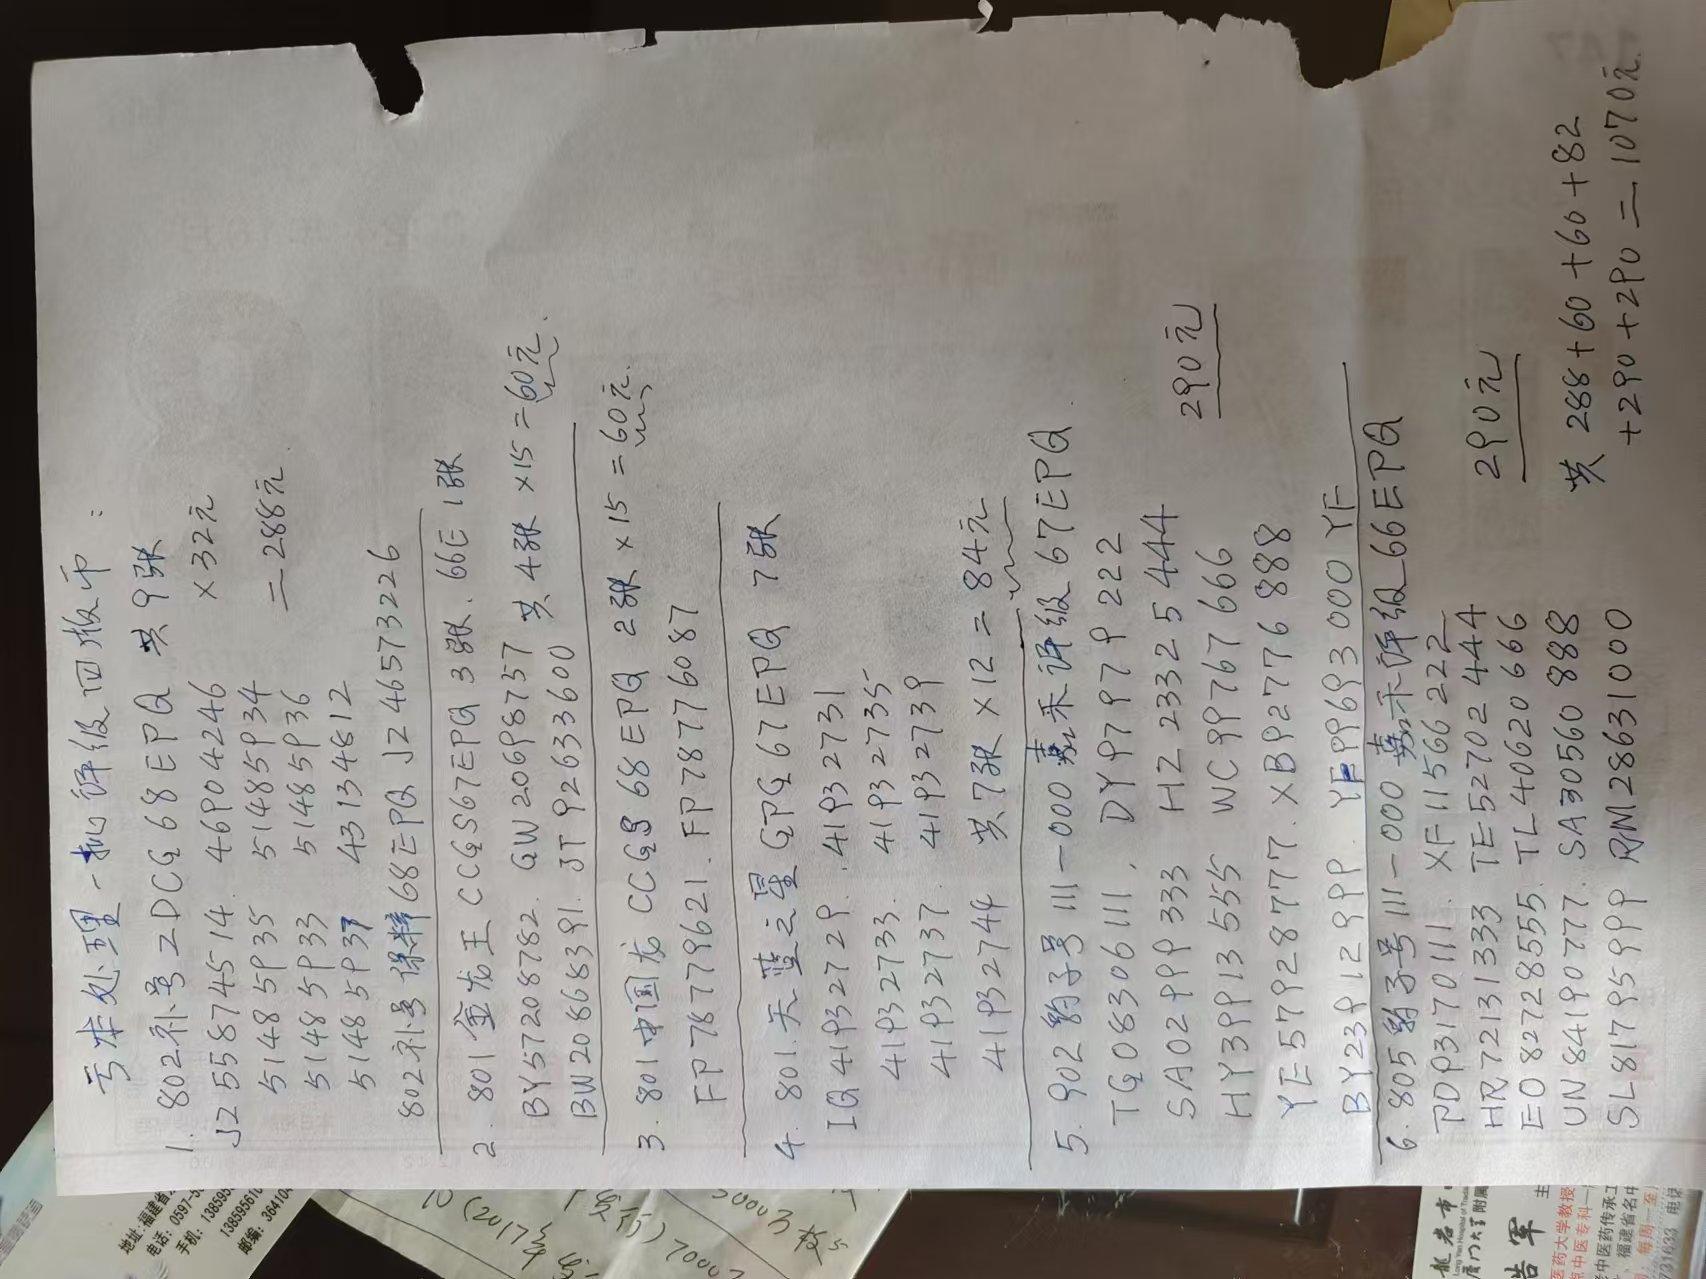 亏本处理一批评级四版币：
1. 802补号ZDCG68EPQ 共9张
JZ55874514. 46904246 ×32元
51485935 51485934
51485933 51485936 =288元
51485937 43134812
802补号保粹68EPQ JZ46573226
2. 801金龙王CCGS67EPQ 3张. 66E 1张
BY57208782. GW20698757
BW20868391. JT92633600 共4张×15=60元.
3. 801中国龙CCGS68EPQ 2张×15=60元.
FP78779621. FP78776087
4. 801.天蓝之星GPG67EPQ 7张
IQ41932729. 41932731
41932733. 41932735
41932737. 41932739
41932744 共7张×12=84元
5. 902豹子号111-000嘉禾评级67EPQ.
TG08306111. DY97979222
SA02999333 HZ23325444
HY39913555 WC99767666 290元
YE57928777. XB92776888
BY23912999. YE99693000 YE
6. 805豹子号111-000嘉禾评级66EPQ
PD93170111. XF11566222
HR72131333 TE52702444
EO82728555. TL40620666 290元
UN84190777. SA30560888
SL81795999 RM28631000
共288+60+60+82
+290+290=1070元.
地址:福建省
电话:0597-5
龙岩市